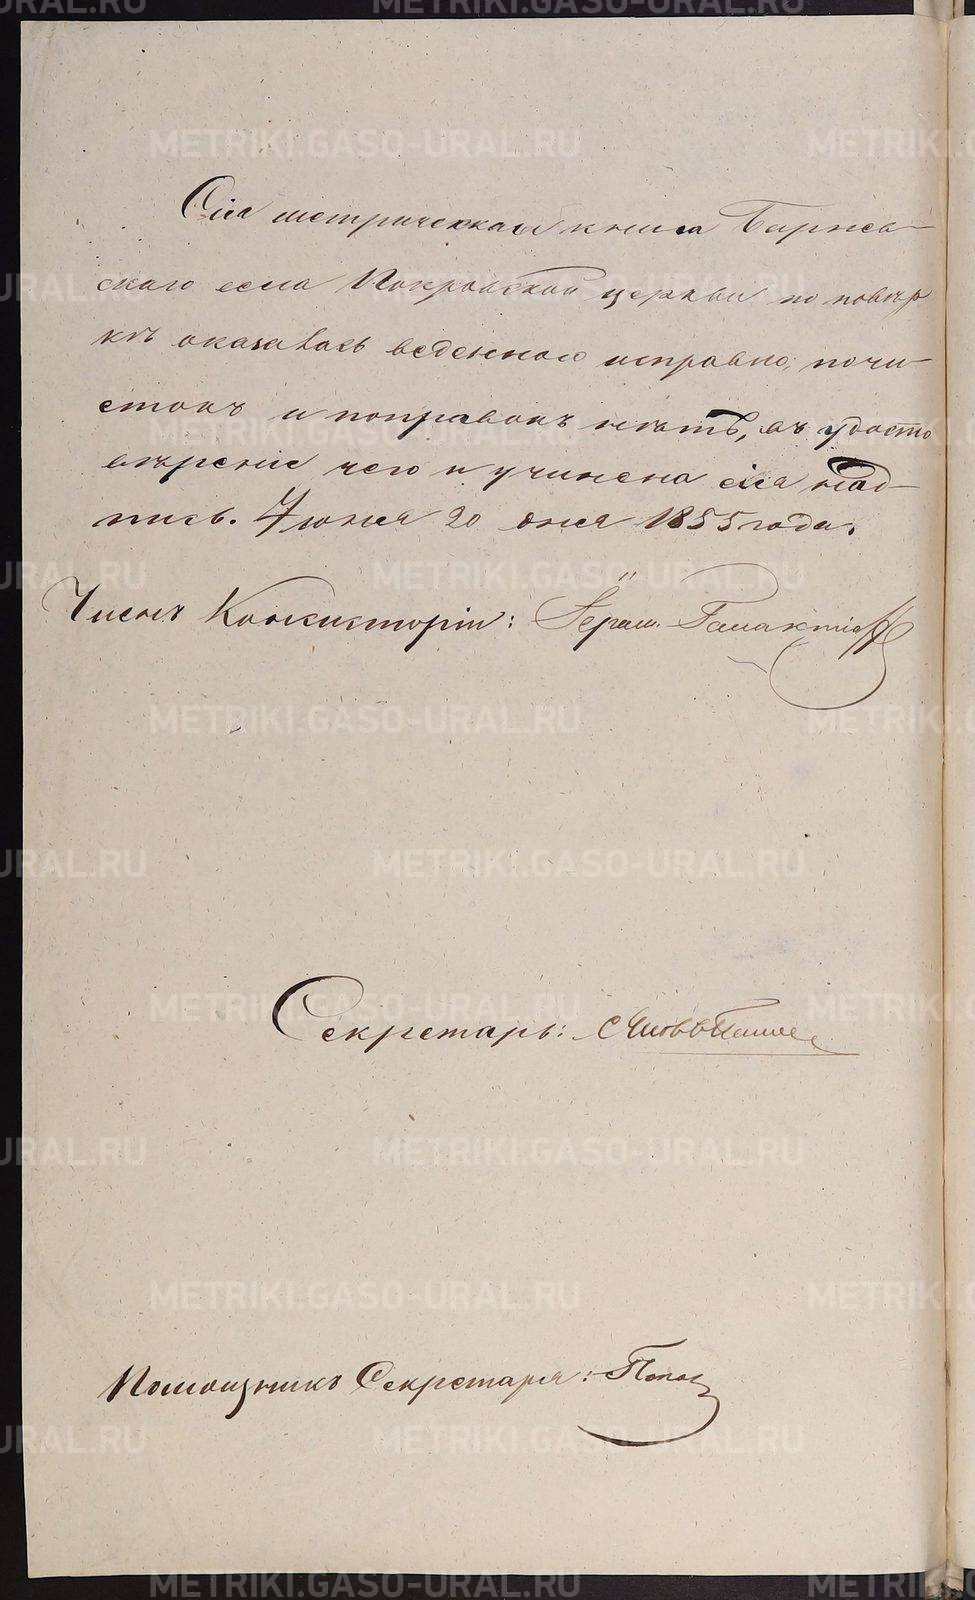 Сія метрическая книга Барнев-
скаго села Покровской церкви по повѣр
кѣ оказалась веденною исправно, почи-
стокъ и поправокъ нѣтъ, въ удосто
вѣреніе чего и учинена сія над-
пись. Іюня 20 дня 1855 года.
Членъ Консисторіи: Іером. Галактіонъ
Секретарь:
Помощникъ Секретаря: Попов
METRIKI.GASO-URAL.RU